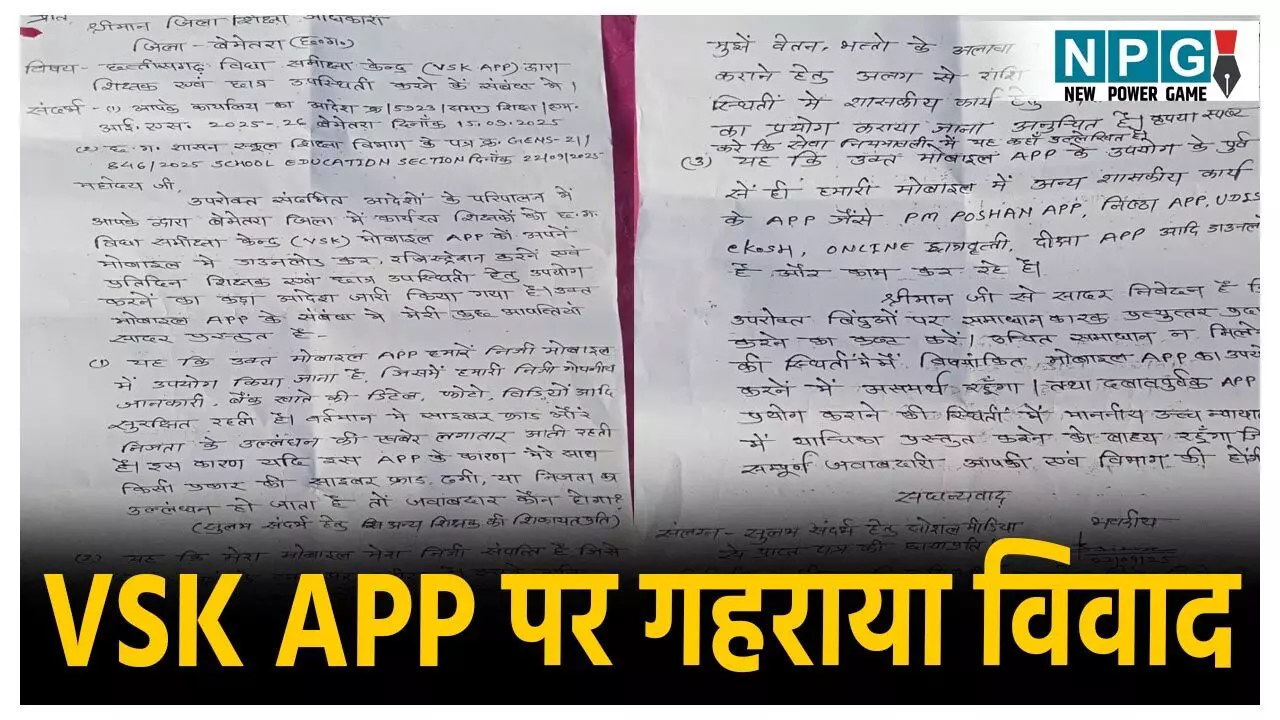 प्रति,
श्रीमान जिला शिक्षा अधिकारी
जिला - बेमेतरा (छ०ग०)
विषय - छत्तीसगढ़ विद्या समीक्षा केन्द्र (VSK APP) द्वारा
शिक्षक एवं छात्र उपस्थिती करने के संबंध में।
संदर्भ - (1) आपके कार्यालय का आदेश क्र/5923/समग्र शिक्षा/एम.
आई.एस. 2025-26 बेमेतरा दिनाँक 15.09.2025
(2) छ.ग. शासन स्कूल शिक्षा विभाग के पत्र क्र. GENS-21/
846/2025 SCHOOL EDUCATION SECTION दिनाँक 22/09/2025
महोदय जी,
उपरोक्त संदर्भित आदेशों के परिपालन में
आपके द्वारा बेमेतरा जिला में कार्यरत शिक्षकों को छ.ग.
विद्या समीक्षा केन्द्र (VSK) मोबाइल APP को अपने
मोबाइल में डाउनलोड कर, रजिस्ट्रेशन करने एवं
प्रतिदिन शिक्षक एवं छात्र उपस्थिती हेतु उपयोग
करने का कड़ा आदेश जारी किया गया है। उक्त
मोबाइल APP के संबंध में मेरी कुछ आपत्तियां
सादर प्रस्तुत है -
(1) यह कि उक्त मोबाइल APP हमारे निजी मोबाइल
में उपयोग किया जाना है, जिसमें हमारी निजी गोपनीय
जानकारी, बैंक खाते की डिटेल, फोटो, विडियो आदि
सुरक्षित रहती है। वर्तमान में साइबर फ्राड और
निजता के उल्लंघन की खबरें लगातार आती रहती
है। इस कारण यदि इस APP के कारण मेरे साथ
किसी प्रकार की साइबर फ्राड, ठगी, या निजता का
उल्लंघन हो जाता है तो जवाबदार कौन होगा?
(सुलभ संदर्भ हेतु अन्य शिक्षक की शिकायत प्रति)
(2) यह कि मेरा मोबाइल मेरा निजी संपत्ति है जिसे
मुझे वेतन, भत्तो के अलावा
कराने हेतु अलग से राशि
स्थिती में शासकीय कार्य हेतु
का प्रयोग कराया जाना अनुचित है। कृपया स्पष्ट
करे कि सेवा नियमावली में यह कहाँ उल्लेखित है।
(3) यह कि उक्त मोबाइल APP के उपयोग के पूर्व
से ही हमारी मोबाइल में अन्य शासकीय कार्य
के APP जैसे PM POSHAN APP, निष्ठा APP, UDISE
eKOSH, ONLINE छात्रवृत्ती, दीक्षा APP आदि डाउनलो
है और काम कर रहे है।
श्रीमान जी से सादर निवेदन है
उपरोक्त बिंदुओं पर समाधान कारक प्रत्युत्तर
करने का कष्ट करें। उचित समाधान न मिलने
की स्थिती में मैं विषयांकित मोबाइल APP का
करने में असमर्थ रहूँगा। तथा दबावपूर्वक APP
प्रयोग कराने की स्थिती में माननीय उच्च
में याचिका प्रस्तुत करने को बाध्य रहूँगा
सम्पूर्ण जवाबदारी आपकी एवं विभाग की होगी
सधन्यवाद
भवदीय
संलग्न - सुलभ संदर्भ हेतु सोशल मीडिया
से प्राप्त पत्र की छायाप्रति।
NPG
NEW POWER GAME
VSK APP पर गहराया विवाद